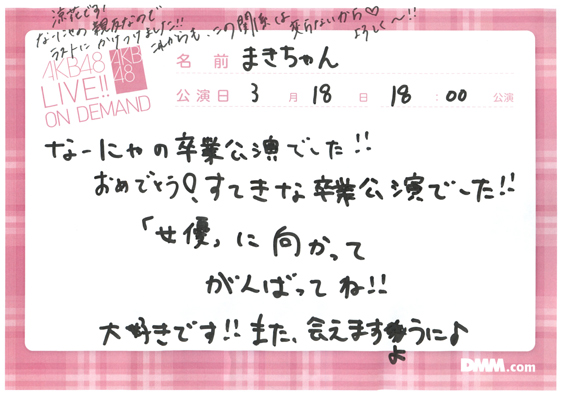 涼花です!
なーにゃの親友なので
ラストにかけつけました!!
これからも、この関係は変らないから♡
よろしく〜!!
AKB48
LIVE!!
ON DEMAND
AKB
48
名前 まきちゃん
公演日 3月18日 18:00 公演
なーにゃの卒業公演でした!!
おめでとう! すてきな卒業公演でした!!
「女優」に向かって
がんばってね!!
大好きです!! また、会えますように♪
DMM.com